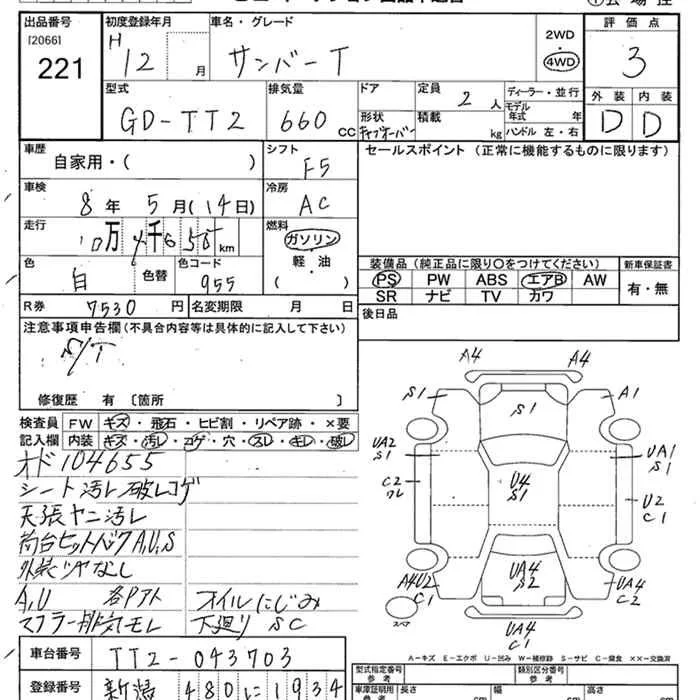 出品番号
[2066]
221
初度登録年月
H 12 月
車名・グレード
サンバーT
2WD
・
4WD
評価点
3
外装 内装
D D
型式
GD-TT2
排気量
660 CC
ドア
形状
キャブオーバー
定員
2 人
積載
kg
ディーラー・並行
モデル年式 年
ハンドル 左・右
車歴
自家用・( )
シフト
F5
セールスポイント (正常に機能するものに限ります)
車検
8年 5月(14日)
冷房
AC
走行
10万 4千6 55 km
燃料
ガソリン
軽・油
( )
色
白
色替
色コード
955
装備品 (純正品に限り○をつけてください)
PS PW ABS エアB AW
SR ナビ TV カワ
新車保証書
有・無
R券 7530 円
名変期限 月 日
後日品
注意事項申告欄(不具合内容等は具体的に記入して下さい)
S/T
修復歴 有 〔箇所 〕
検査員記入欄
FW キズ・飛石・ヒビ割・リペア跡・×要
内装 キズ・汚レ・コゲ・穴・スレ・キレ・破レ
オド104655
シート汚レ破レコゲ
天張ヤニ汚レ
荷台ヒットバクA,U,S
外装ツヤなし
A,U 各Pアト オイルにじみ
マフラー排気モレ 下廻りSC
A4 A4
S1 S1 A1
UA2 S1
UA1 S1
C2
ワレ
U4 S1
U2 C1
A4U2 C1
UA4 S2
UA4 C2
スペア
UA4 C1
A-キズ E-エクボ U-凹み W-補修跡 S-サビ C-腐食 ××-交換済
車台番号
TT2-043703
登録番号
新潟 480 に 1934
型式指定番号
参考
類別区分番号
参考
車庫証明用
参考
長さ cm
幅 cm
高さ cm